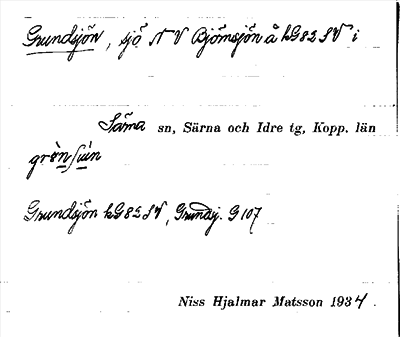 Grundsjön, sjö N V Björnsjön å kG82 SV i
Särna sn, Särna och Idre tg, Kopp. län
Grundsjön kG82 SV, Grundsj. G 107
Niss Hjalmar Matsson 1934.